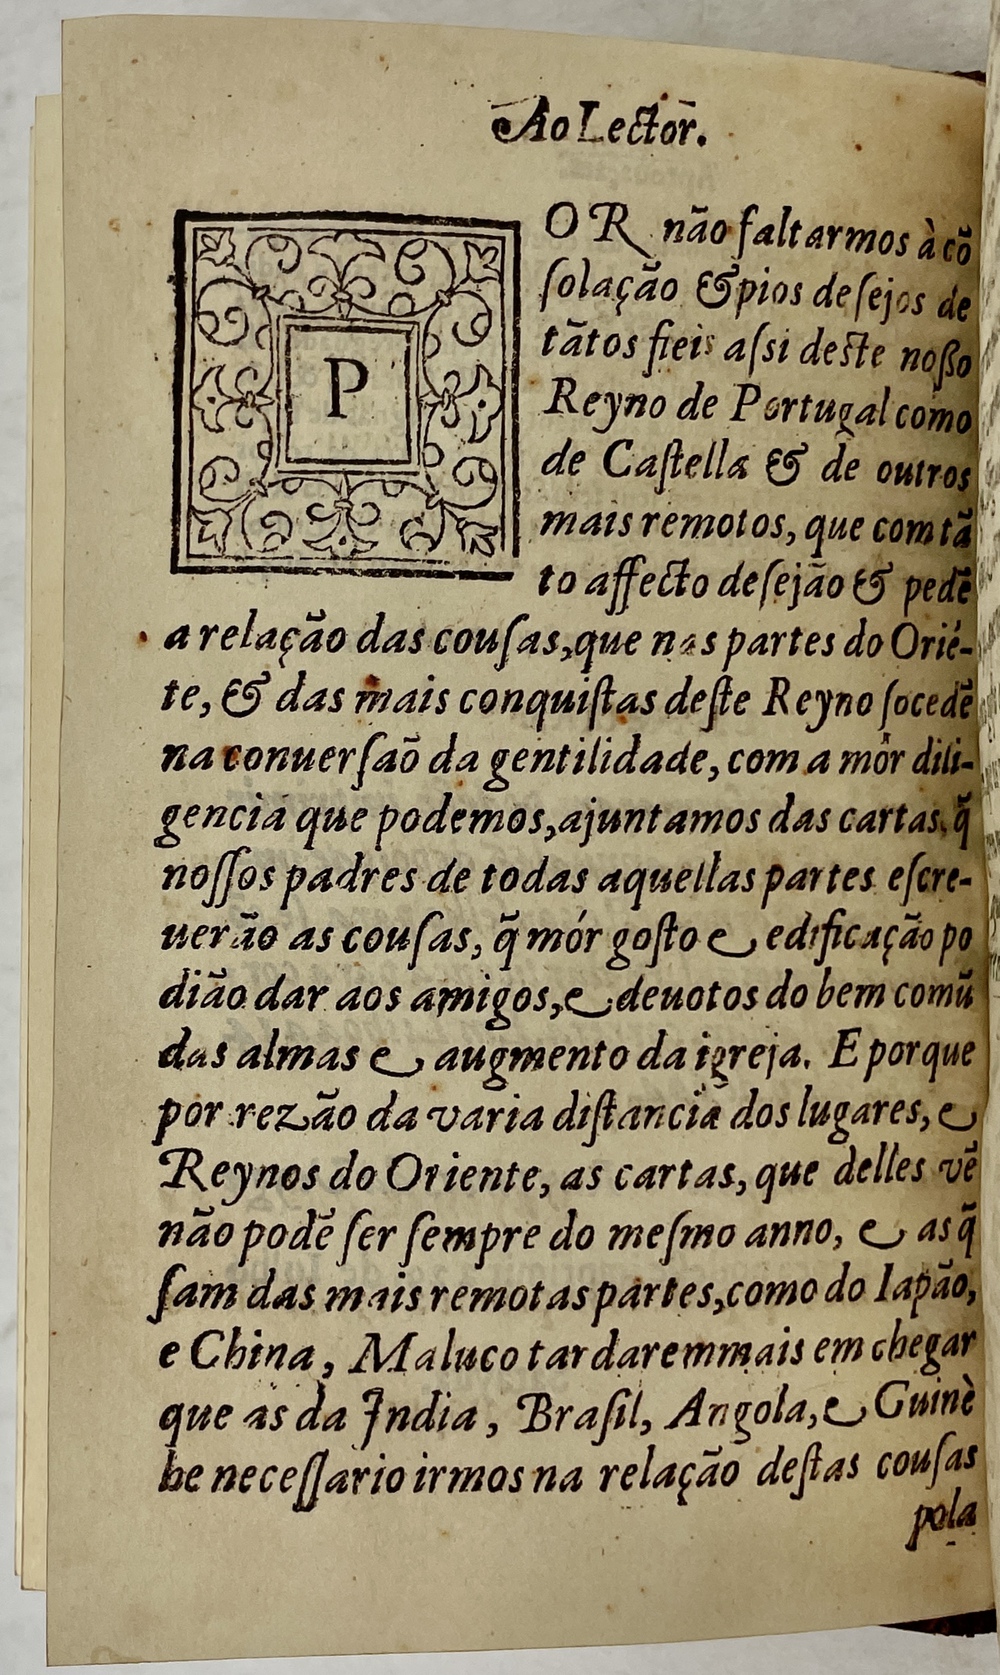 Ao Lector.
POR não faltarmos à cõ
ſolação & pios deſejos de
tãtos fieis aſsi deſte noßo
Reyno de Portugal como
de Caſtella & de outros
mais remotos, que com tã
to affecto deſejão & pedẽ
a relação das couſas, que nas partes do Orié-
te, & das mais conquiſtas deſte Reyno ſocedẽ
na conuerſaõ da gentilidade, com a mór dili-
gencia que podemos, ajuntamos das cartas, q̃
noſſos padres de todas aquellas partes eſcre-
uerão as couſas, q̃ mór goſto e edificação po
dião dar aos amigos, e deuotos do bem comũ
das almas e augmento da igreja. E porque
por rezão da varia diſtancia dos lugares, e
Reynos do Oriente, as cartas, que delles vẽ
não podẽ ſer ſempre do meſmo anno, e as q̃
ſam das mais remotas partes, como do Iapão,
e China, Maluco tardarem mais em chegar
que as da India, Braſil, Angola, e Guinè
he neceſſario irmos na relação deſtas couſas
pola